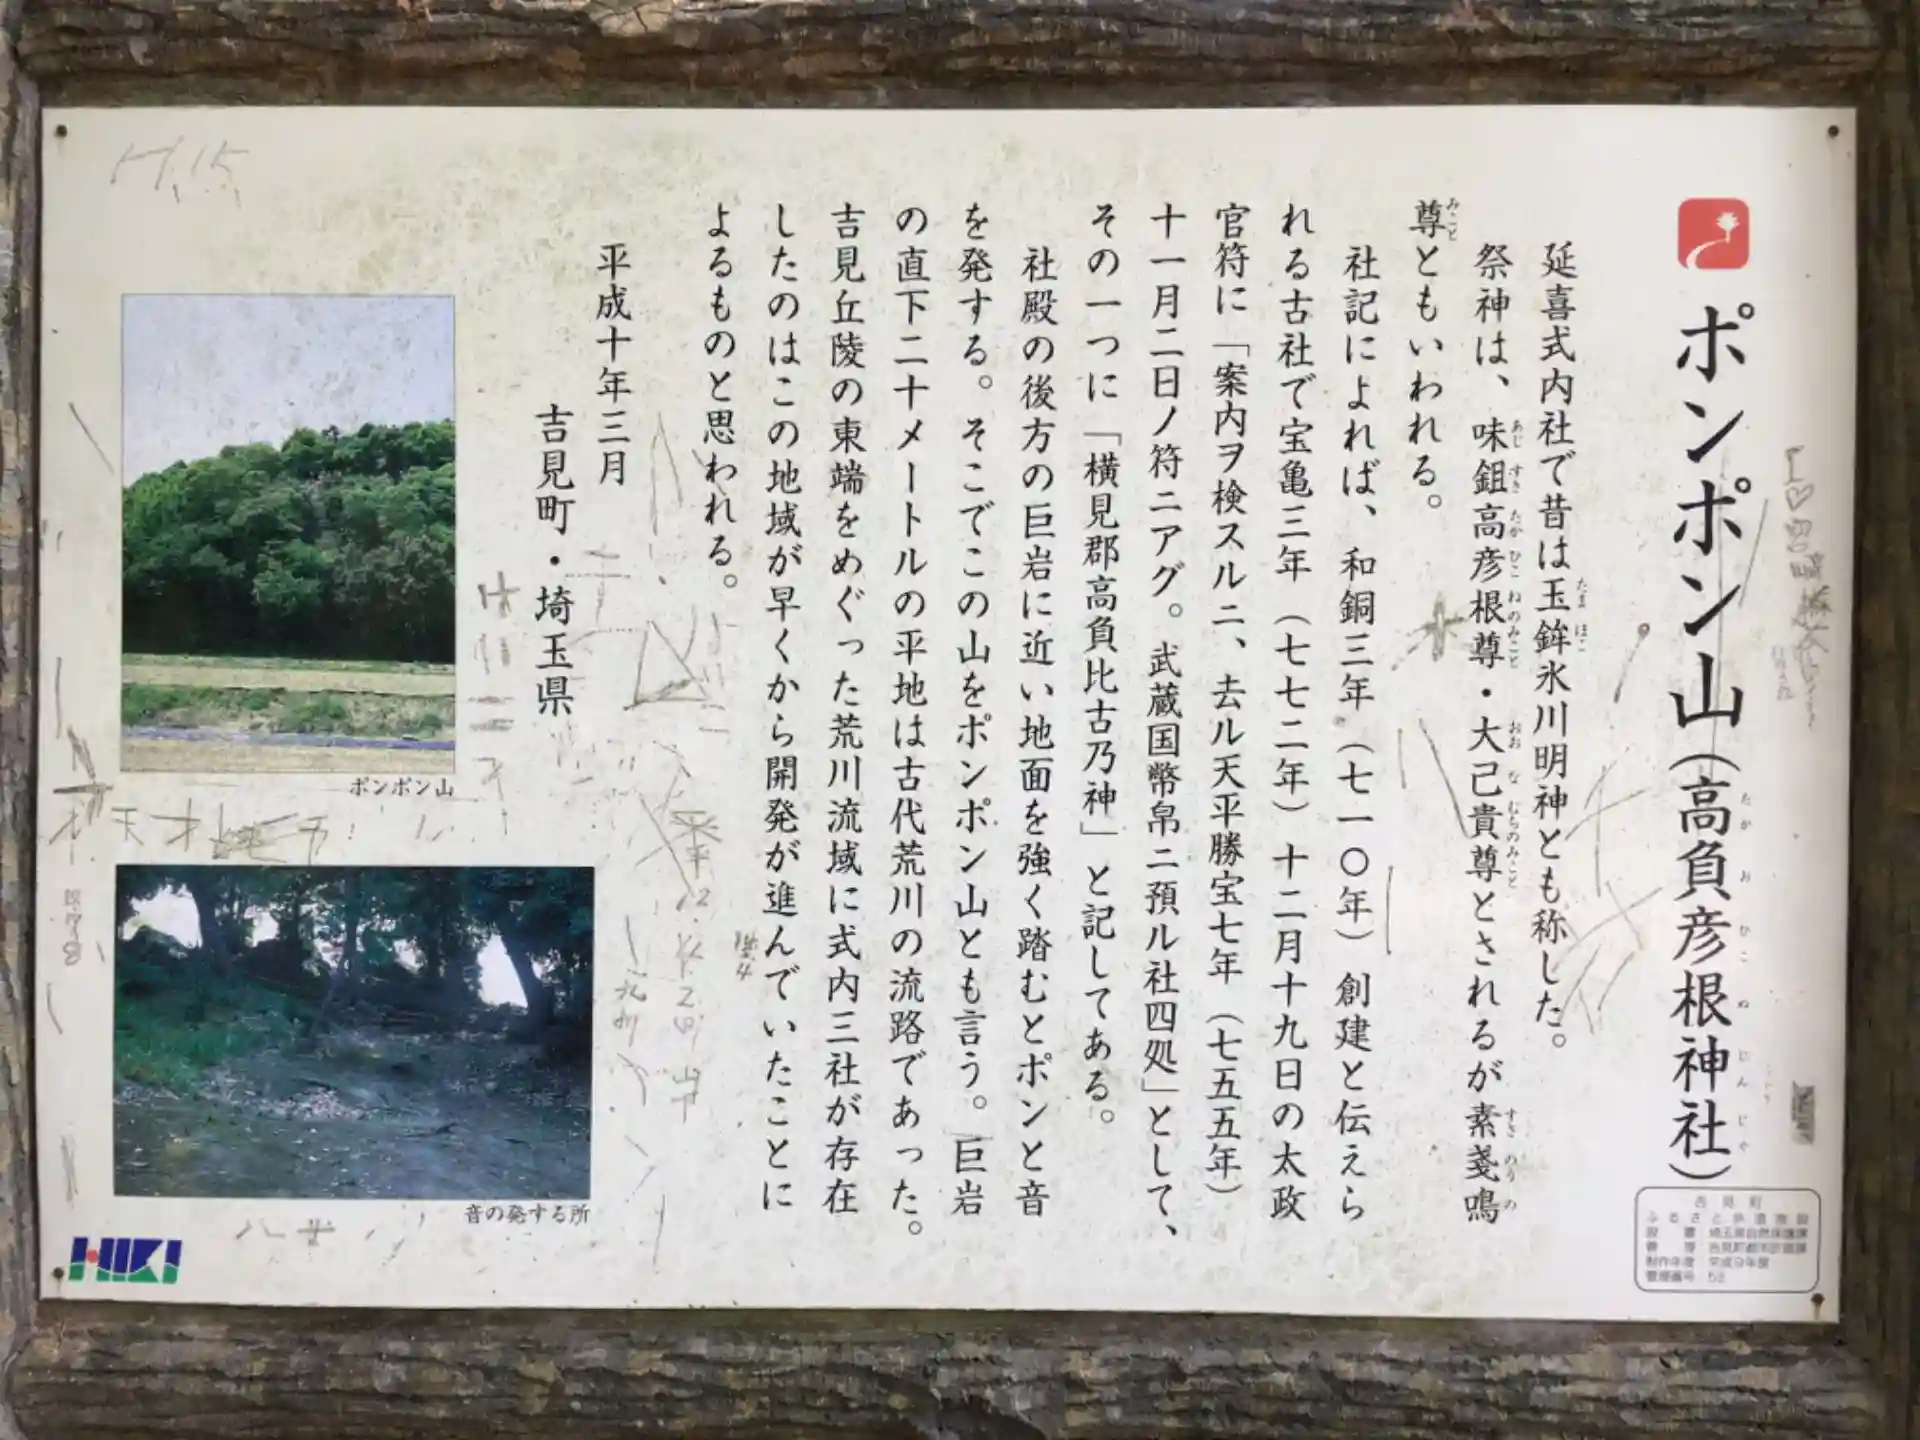 ポンポン山(高負彦根神社)
延喜式内社で昔は玉鉾氷川明神とも称した。
祭神は、味鉏高彦根尊・大己貴尊とされるが素戔鳴
尊ともいわれる。
社記によれば、和銅三年(七一〇年)創建と伝えら
れる古社で宝亀三年(七七二年)十二月十九日の太政
官符に「案内ヲ検スルニ、去ル天平勝宝七年(七五五年)
十一月二日ノ符ニアグ。武蔵国幣帛ニ預ル社四処」として、
その一つに「横見郡高負比古乃神」と記してある。
社殿の後方の巨岩に近い地面を強く踏むとポンと音
を発する。そこでこの山をポンポン山とも言う。巨岩
の直下二十メートルの平地は古代荒川の流路であった。
吉見丘陵の東端をめぐった荒川流域に式内三社が存在
したのはこの地域が早くから開発が進んでいたことに
よるものと思われる。
平成十年三月
吉見町・埼玉県
ポンポン山
音の発する所
HIKI
吉見町
ふるさと歩道施設
制作年度 平成9年度
管理番号 52
H.15